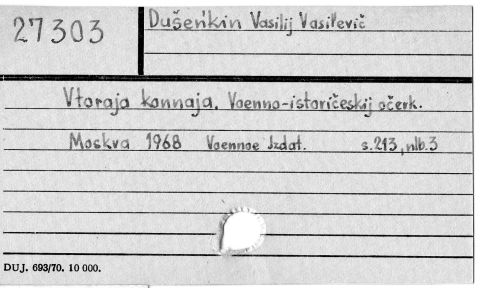 27303
Dušeńkin Vasilij Vasil'evič
Vtoraja konnaja. Voenno-istoričeskij očerk.
Moskva 1968 Voennoe Izdat. s.213, nlb.3
DUJ. 693/70. 10 000.